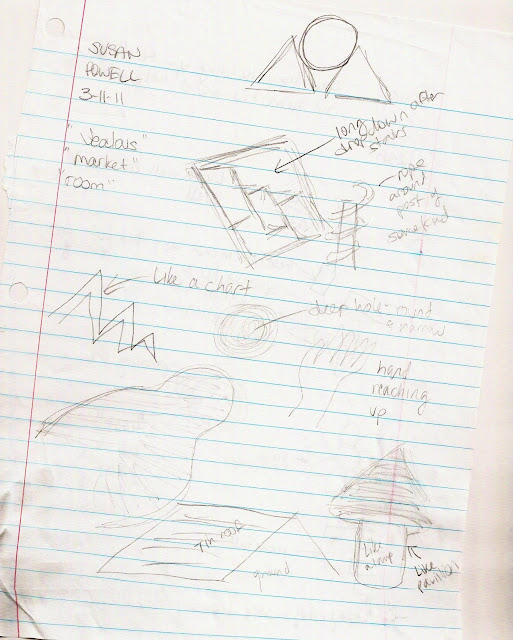 SUSAN
POWELL
3-11-11
"Jealous"
"market"
"room"
long down after
drop stairs
rope
around
post of
some kind
like a chart
deep hole - round
& narrow
hand
reaching
up
Tin roof
ground
Like
a lamp
Like
pavilion